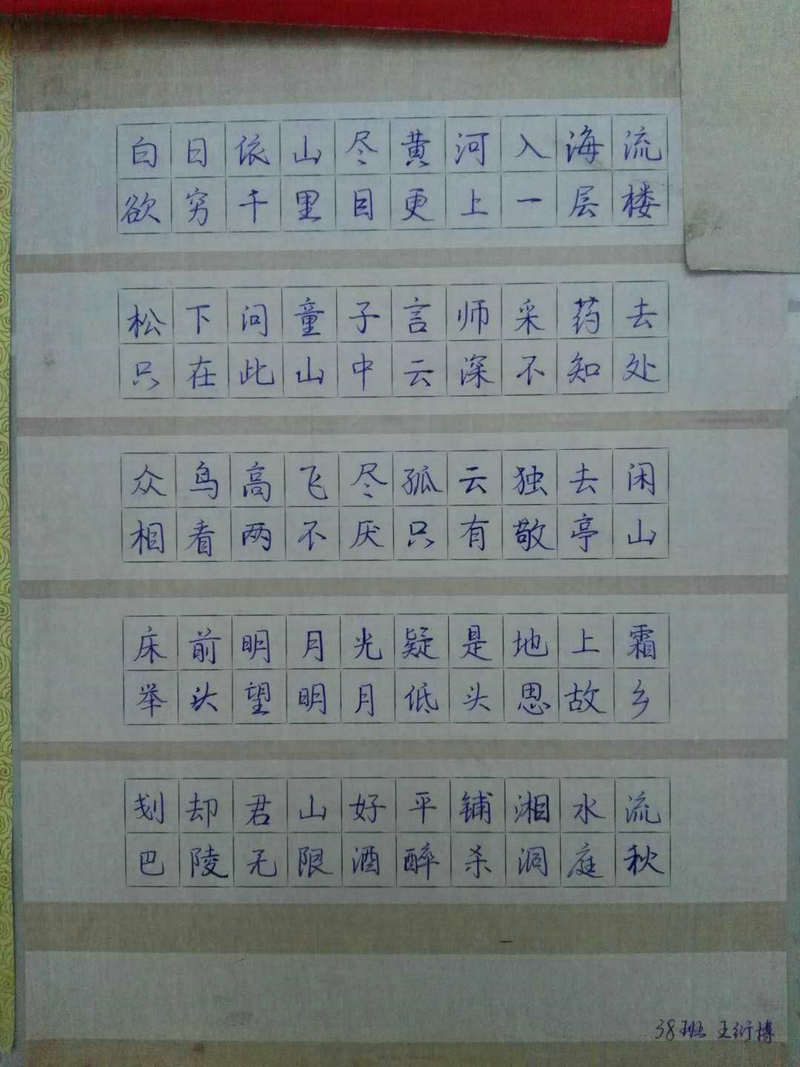 白日依山尽黄河入海流
欲穷千里目更上一层楼
松下问童子言师采药去
只在此山中云深不知处
众鸟高飞尽孤云独去闲
相看两不厌只有敬亭山
床前明月光疑是地上霜
举头望明月低头思故乡
刬却君山好平铺湘水流
巴陵无限酒醉杀洞庭秋
38班 王衍博